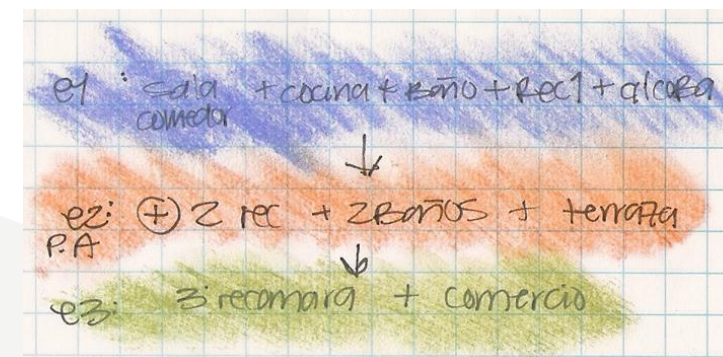 e1: sala + cocina + Baño + Rec1 + alcoba
comedor
e2: + 2 rec + 2 Baños + terraza
P.A
e3: 3 recamara + comercio